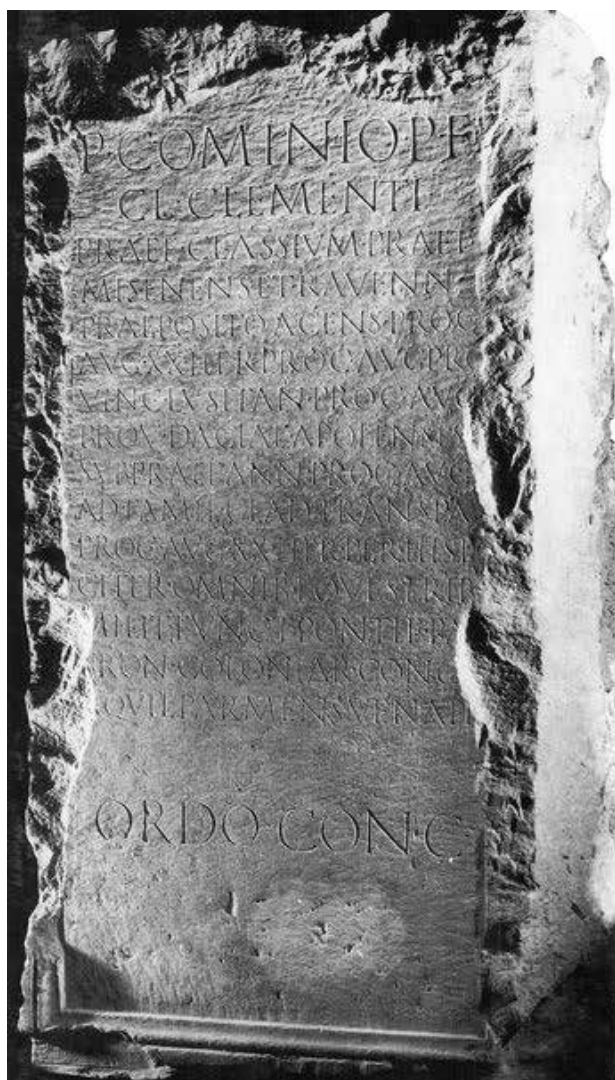 P·COMINIO·P·F
CL·CLEMENTI
PRAEF·CLASSIVM·PRAET
MISENENS·ET·RAVENN
PRAEPOSITO·A·CENS·PROC
AVG·XX·HER·PROC·AVG·PRO
VINC·LVSITAN·PROC·AVG
PROV·DACIAE·APOLENS
SVBPRAEF·ANN·PROC·AVG
AD·FAMIL·GLAD·TRANSPA
PROC·AVG·XX·HER·PER·HISP
CITER·OMNIB·EQVESTRIB
MILIT·FVNCT·PONTIF·PA
TRON·COLONIAR·CON·C
AQVIL·PARMENS·VENAFR
ORDO·CON·C